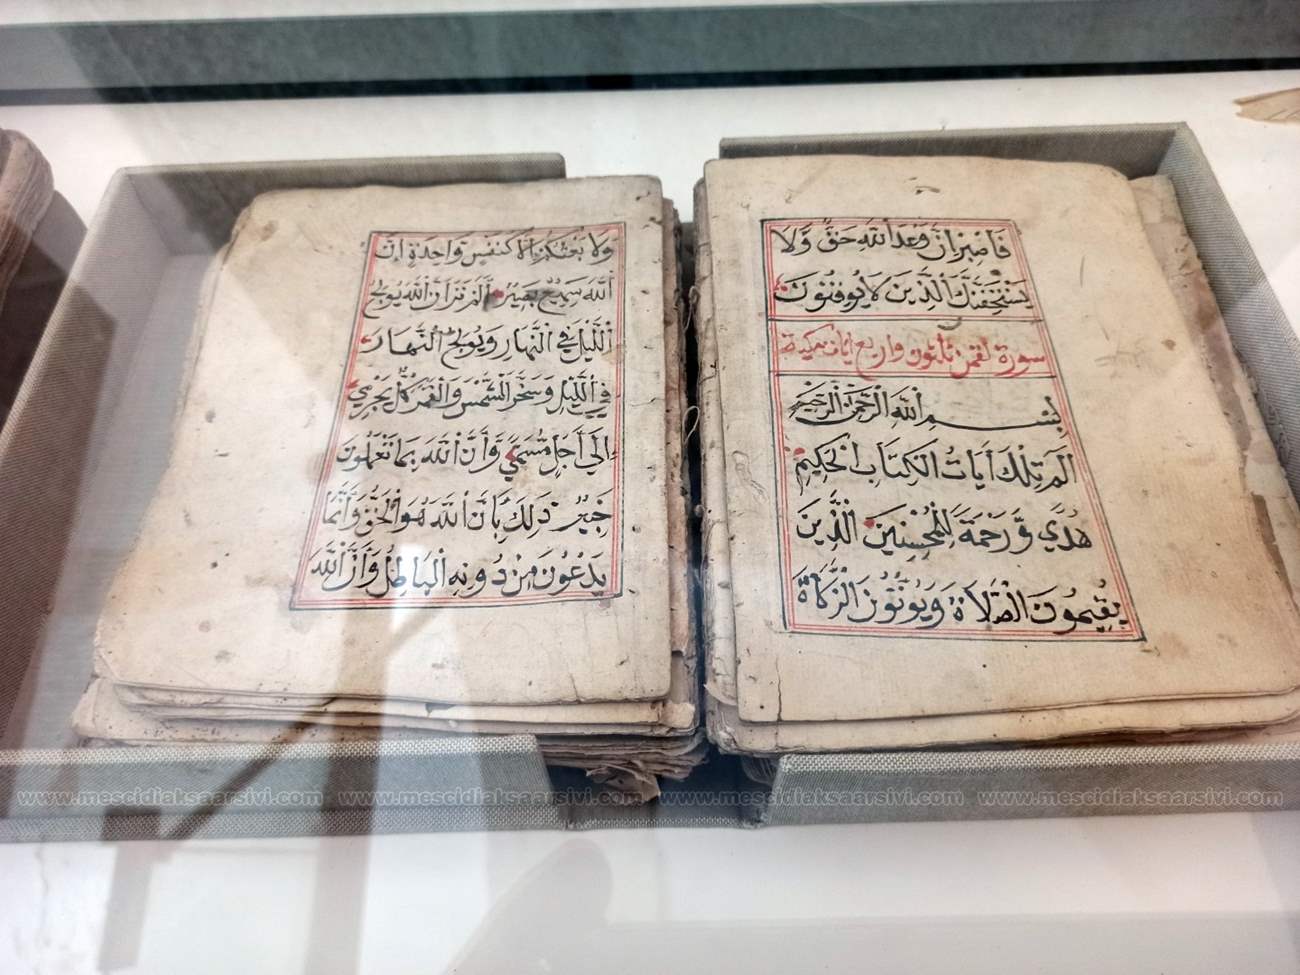 فَاصْبِرْ إِنَّ وَعْدَ اللَّهِ حَقٌّ وَلَا
يَسْتَخِفَّنَّكَ الَّذِينَ لَا يُوقِنُونَ
سورة لقمن ثلثون واربع ايات مكية
بِسْمِ اللَّهِ الرَّحْمَنِ الرَّحِيمِ
الم تِلْكَ أَيَاتُ الْكِتَابِ الْحَكِيمِ
هُدًى وَّرَحْمَةً لِلْمُحْسِنِينَ الَّذِينَ
يُقِيمُونَ الصَّلَاةَ وَيُؤْتُونَ الزَّكَاةَ
وَلَا بَعْثُكُمْ إِلَّا كَنَفْسٍ وَاحِدَةٍ إِنَّ
اللَّهَ سَمِيعٌ بَصِيرٌ أَلَمْ تَرَ أَنَّ اللَّهَ يُولِجُ
الَّيْلَ فِي النَّهَارِ وَيُولِجُ النَّهَارَ
فِي الَّيْلِ وَسَخَّرَ الشَّمْسَ وَالْقَمَرَ كُلٌّ يَجْرِي
إِلَى أَجَلٍ مُّسَمًّى وَّأَنَّ اللَّهَ بِمَا تَعْمَلُونَ
خَبِيرٌ ذَلِكَ بِأَنَّ اللَّهَ هُوَ الْحَقُّ وَأَنَّمَا
يَدْعُونَ مِنْ دُونِهِ الْبَاطِلُ وَأَنَّ اللَّهَ
www.mescidiaksaarsivi.com www.mescidiaksaarsivi.com www.mescidiaksaarsivi.com www.mescidiaksaarsivi.com